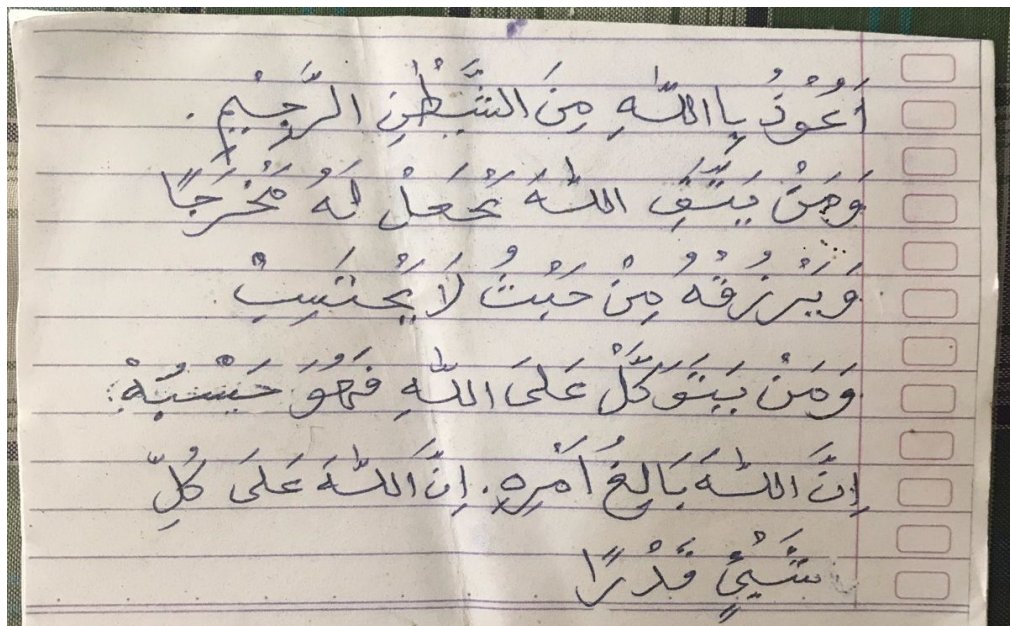 اَعُوْذُ بِااللّٰهِ مِنَ الشَّيْطٰنِ الرَّجِيْمِ.
وَمَنْ يَتَّقِ اللّٰهَ يَجْعَلْ لَهُ مَخْرَجًا
وَيَرْزُقْهُ مِنْ حَيْثُ لَا يَحْتَسِبْ
وَمَنْ يَتَوَكَّلْ عَلَى اللّٰهِ فَهُوَ حَسْبُهْ.
اِنَّ اللّٰهَ بَالِغُ اَمْرِهِ. اِنَّ اللّٰهَ عَلَى كُلِّ
شَيْئٍ قَدْرًا